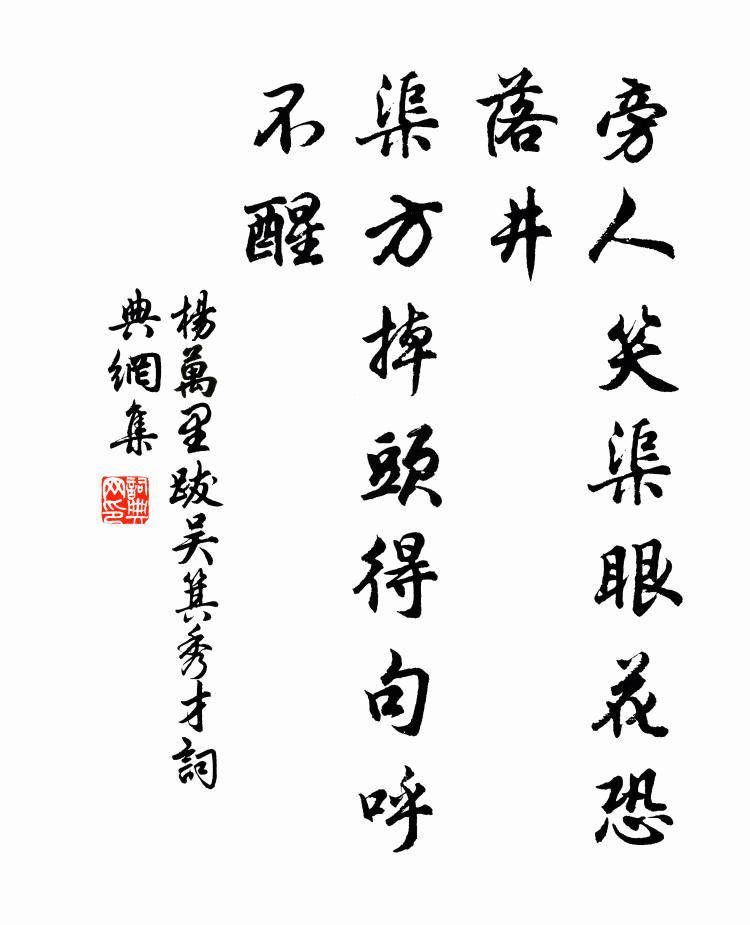 旁人笑渠眼花恐
落井
渠方掉頭得句呼
不醒
楊萬里跋吴箕秀才詞
典網集
詞典
网印